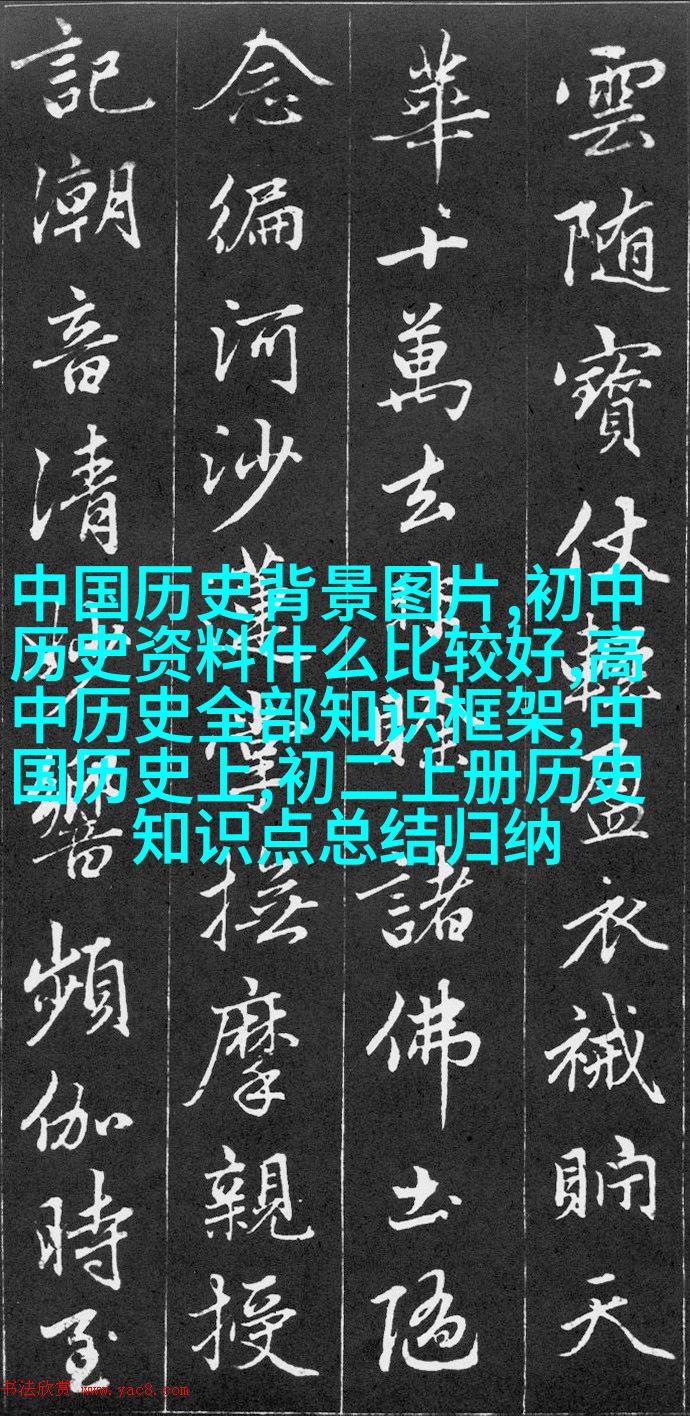 雲随寶仗輕盈衣裓貯天
華十萬去來賒諸佛土隨
念徧河沙蓮掌撫摩親授
記潮音清妙響頻伽時至
中国历史背景图片,初中
历史资料什么比较好,高
中历史全部知识框架,中
国历史上,初二上册历史
知识点总结归纳
书法欣赏 www.yac8.com